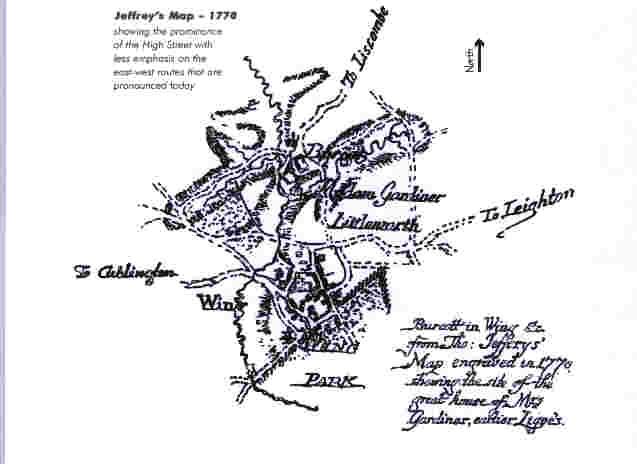 Jeffrey's Map - 1770
showing the prominance
of the High Street with
less emphasis on the
east-west routes that are
pronounced today
To Liscombe
North
Gardiner
Littleworth
To Leighton
To Cublington
Wing
PARK
Burcott in Wing &c.
from Tho: Jefferys'
Map engraved in 1770
showing the site of the
great house of Mrs
Gardiner, earlier Legge's.